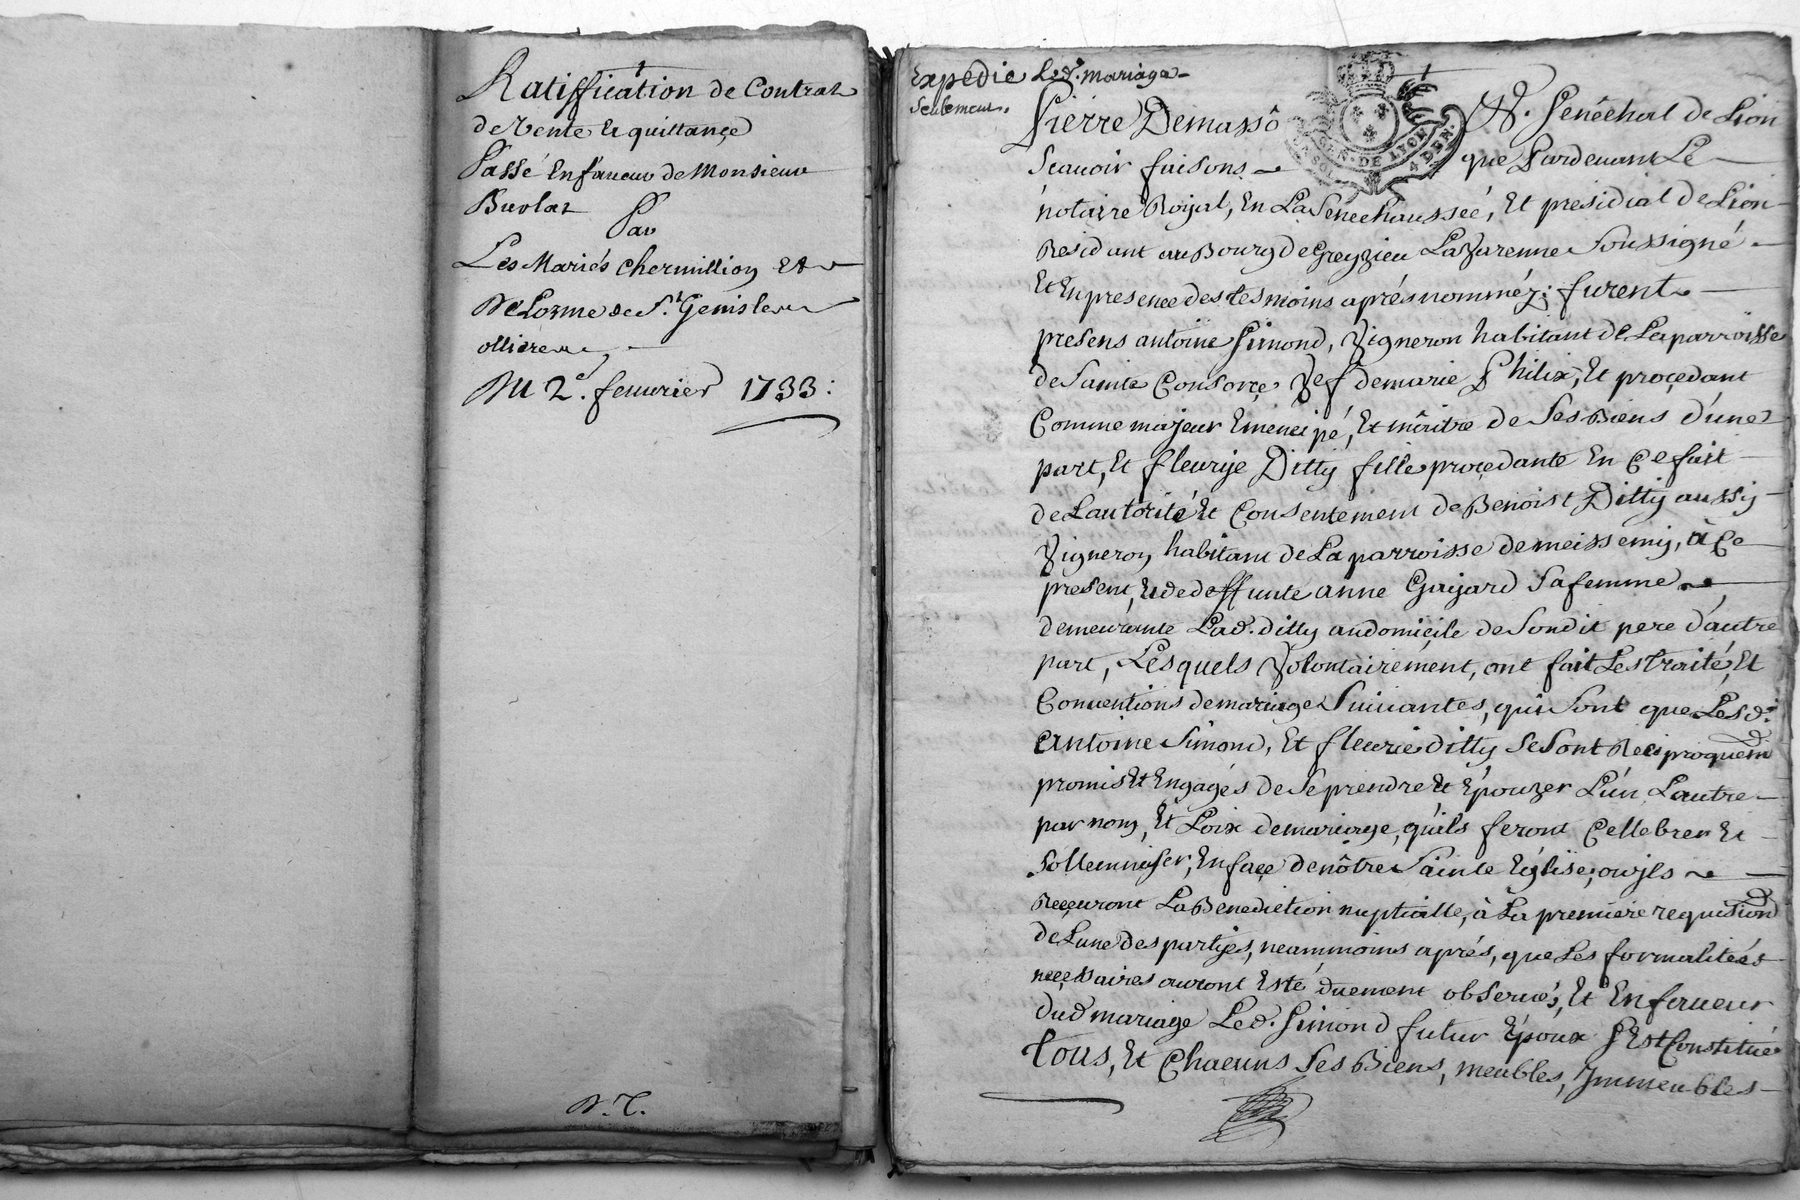 Ratiffication de Contrat
de Vente et quittançe
Passé En faueur de Monsieur
Burlat
Par
Les Mariés Chermillion Et
De Lorme de St. Genis les
ollieres
Du 2e. feuurier 1733:
D.C.
Expedie Led. mariage
Seulement.
Pierre Demassô Sgr. Senêchal de Lion
Scauoir faisons que Pardeuant Le
GEN. DE LYON
notaire Roÿal, En La Sénéchaussée, Et presidial de Lion
Residant au Bourg de Greyzieu La Varenne Soussigné
Et En presence des tesmoins aprés nomméz; furent
presens antoine Simond, Vigneron habitant de La parroisse
de Sainte Consorçe Vef de marie Philix, Et proçedant
Comme majeur Emencipé, Et mâitre de Ses Biens d'une
part, Et fleurije Ditty fille proçedante En Ce fait
de Lautorité Et Consentement de Benoist Ditty aussy
Vigneron habitant de La parroisse de meissemy, à Ce
present, Et de deffunte anne Gayard Sa femme
demeurante Lad. ditty au domiçile de Son dit pere d'autre
part, Lesquels Volontairement, ont fait Les traité, Et
Conuentions de mariage Suiuantes, qui Sont que Lesd.
Antoine Simond, Et fleurie ditty Se Sont Reciproquem
promis Et Engagés de Se prendre Et Épouzer L'un Lautre
par nom, Et Loix de mariage, qu'ils feront Cellebrer Et
Sollemniser, En façe de nôtre Sainte Église, ou jls
Reçeuront La Benediction nuptialle, à La premiere requisition
de Lune des partjes, neammoins aprés, que Les formalitées
neçessaires auront Esté duement obserués, Et En faueur
dud mariage Led. Simond futur Époux S'Est Constitué
tous, Et Chacuns Ses Biens, meubles, Jmmeubles